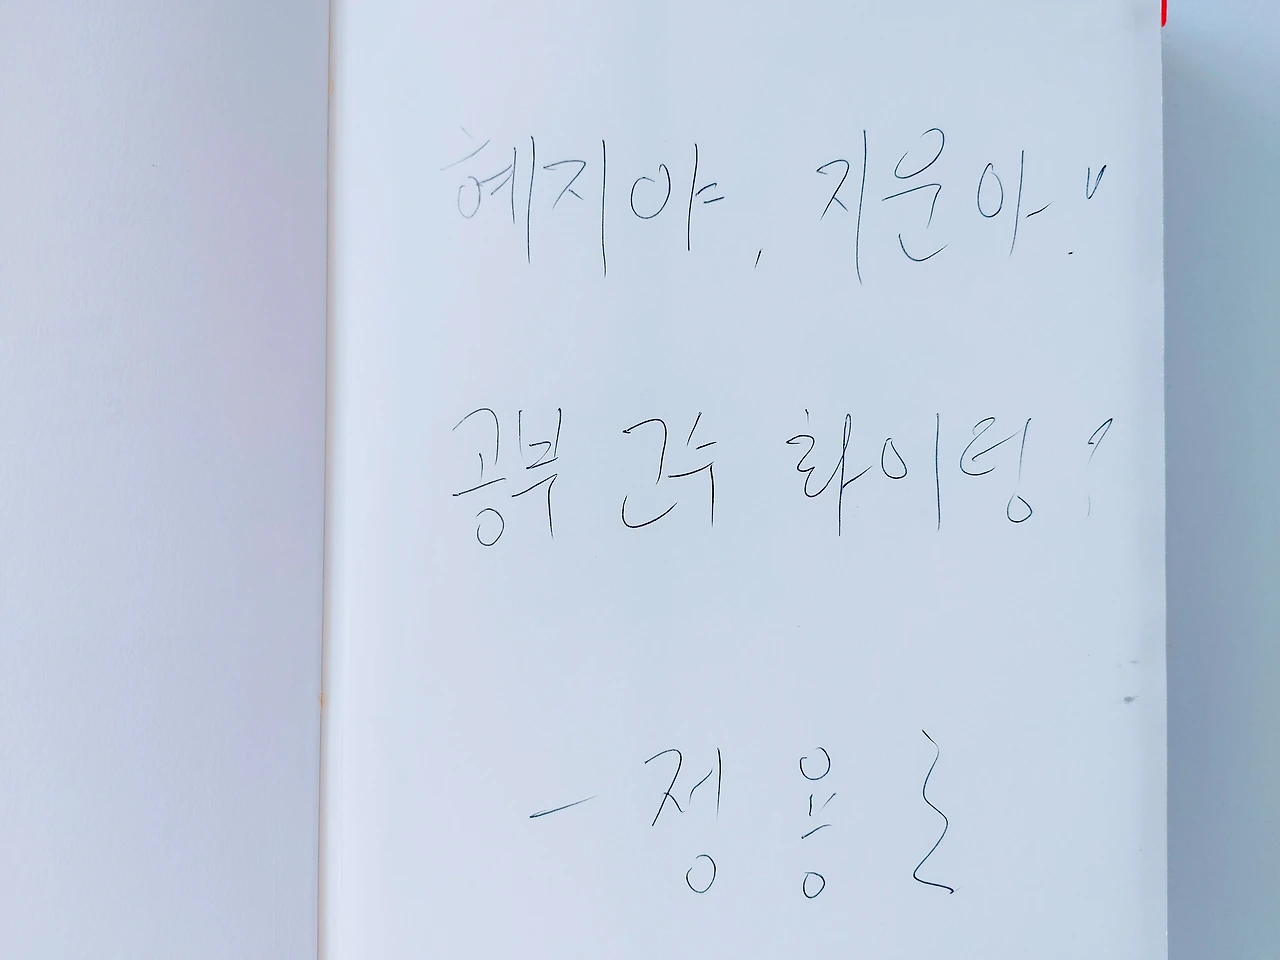 혜지야, 지운아!
공부 고수 화이팅!
- 정용